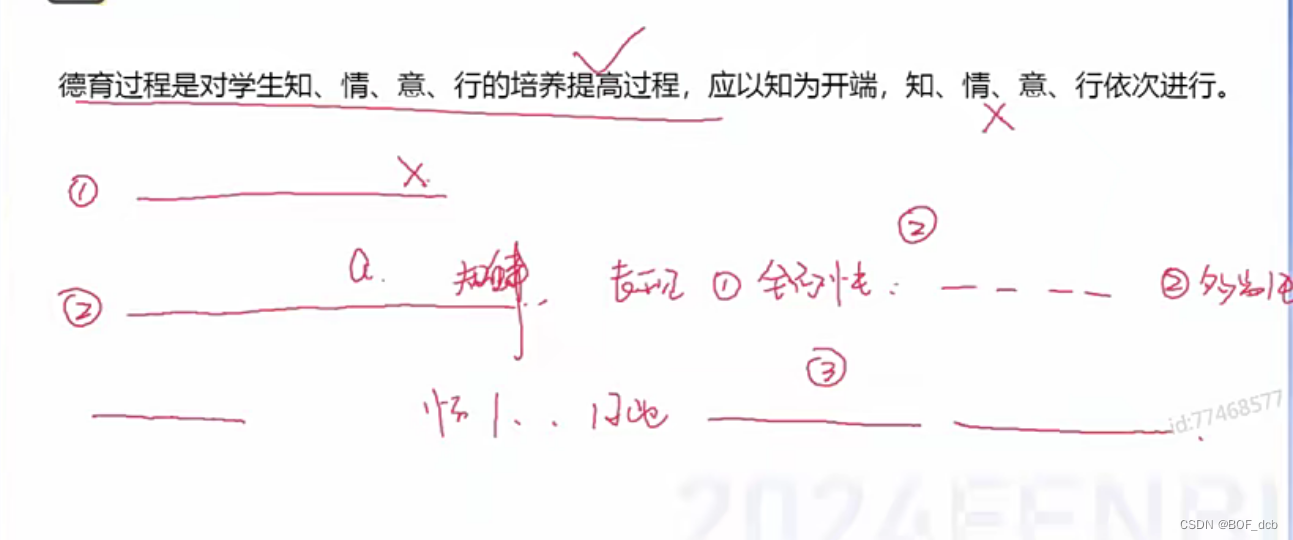 德育过程是对学生知、情、意、行的培养提高过程，应以知为开端，知、情、意、行依次进行。
①
②
② a. 规律 .. 表现 ① 全面性： ② 多端性
③
id:77468577
2024FENBI
CSDN @BOF_dcb